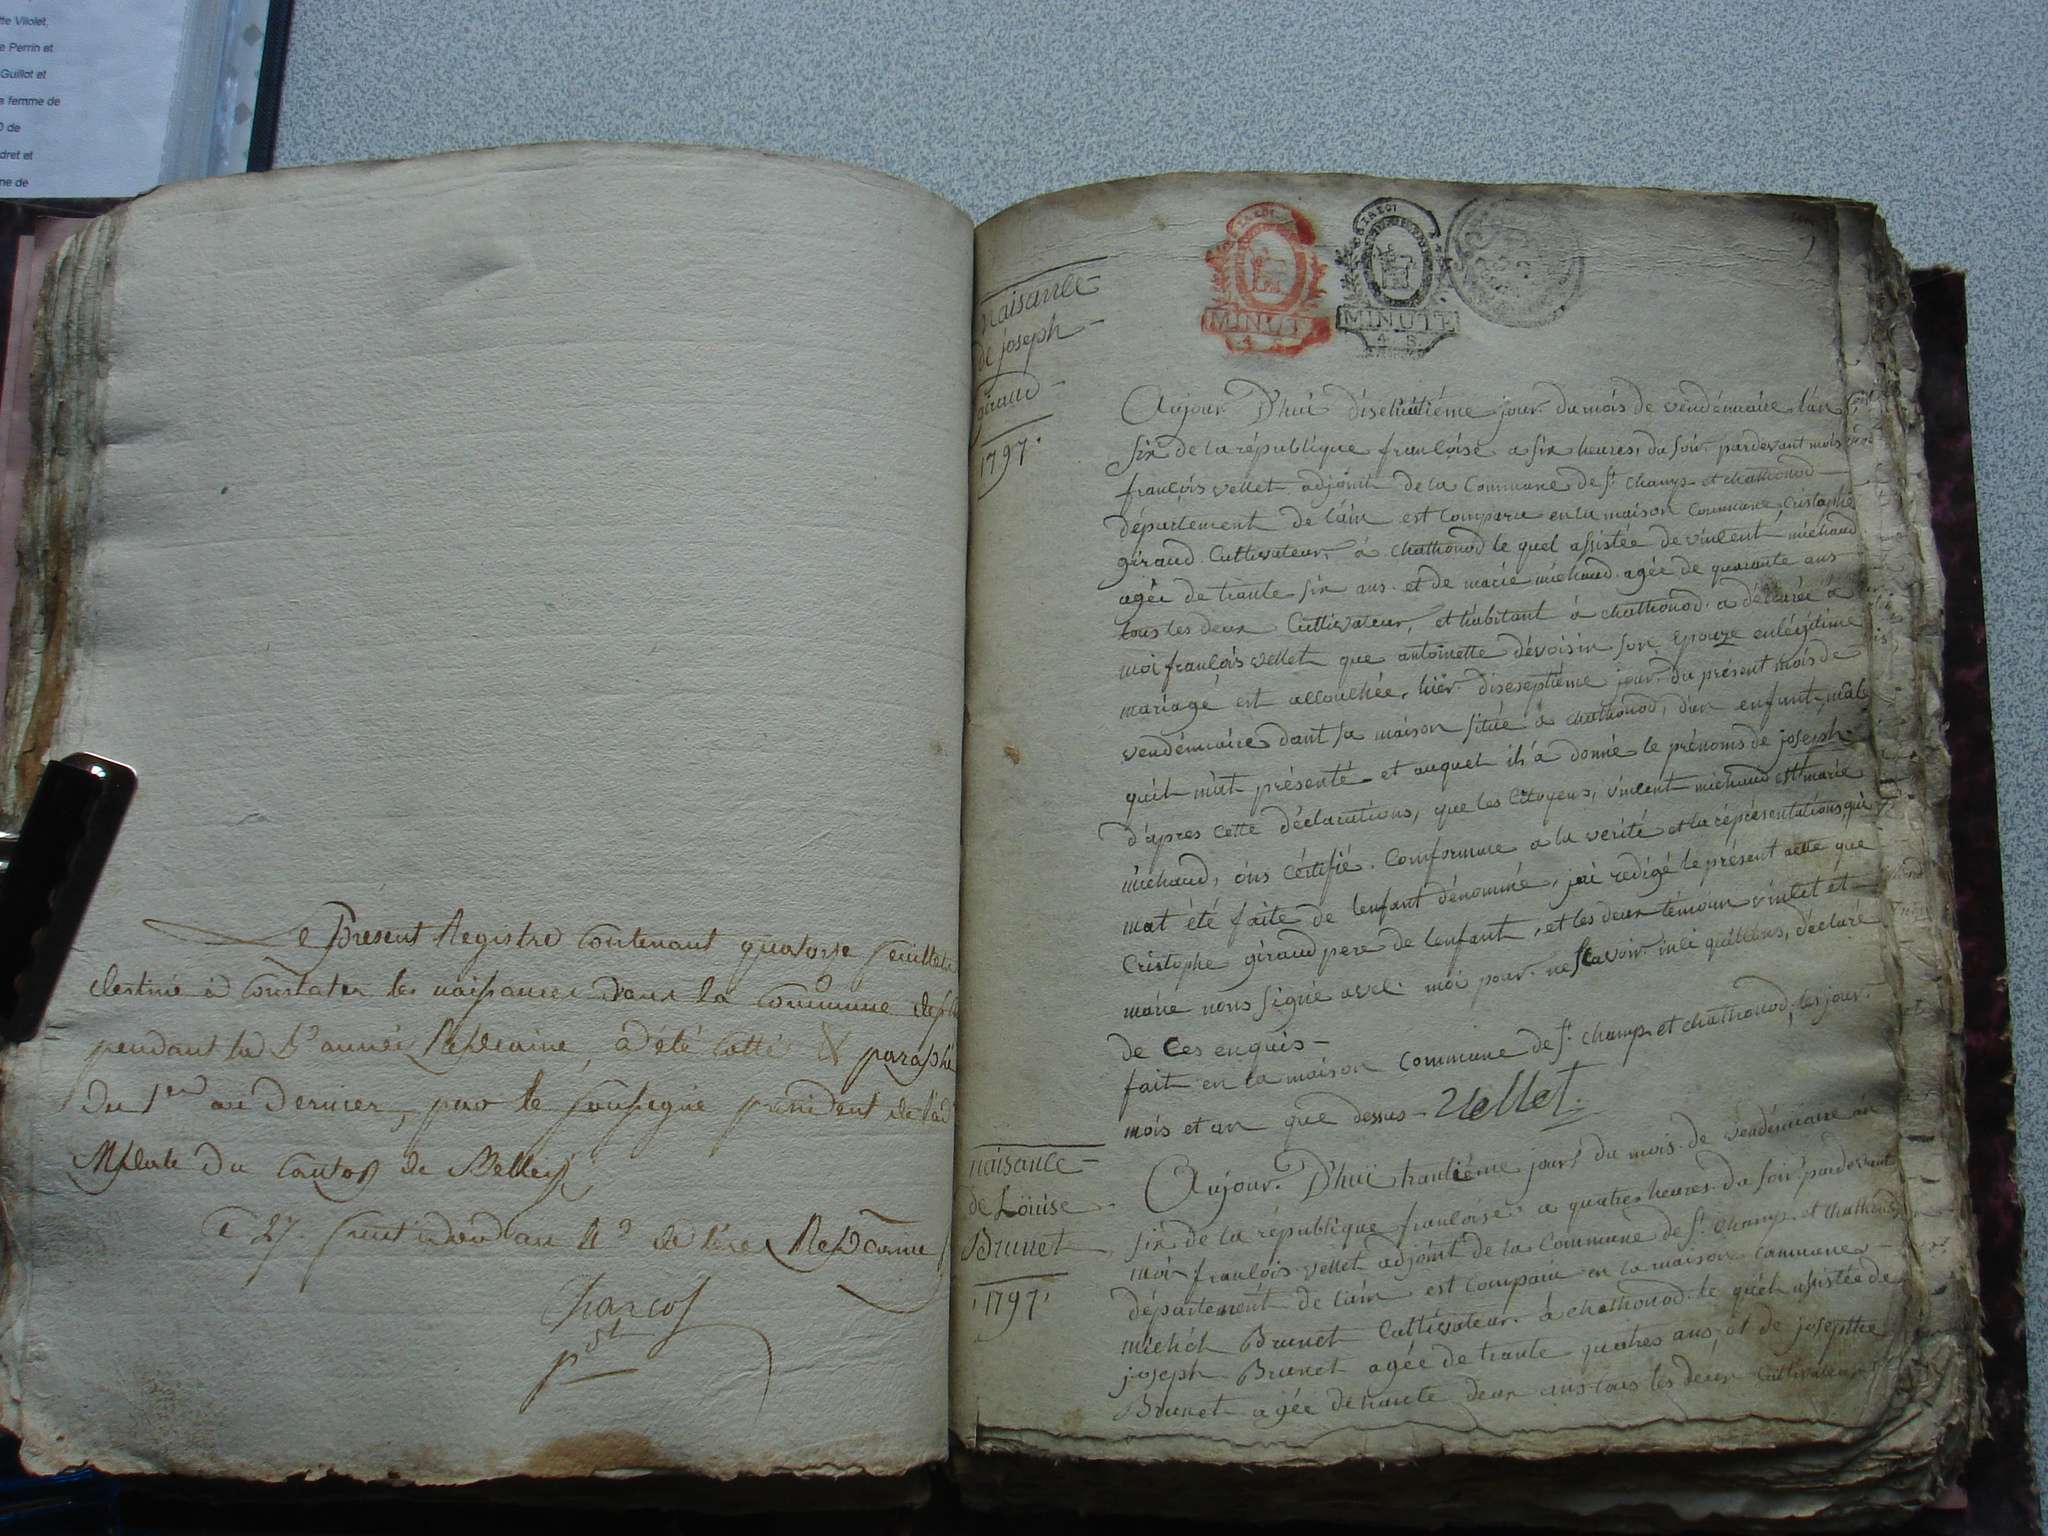 tte Vilolet,
e Perrin et
Guillot et
a femme de
de
dret et
ne de
Le présent Registre contenant quatorze feuillets
destiné à constater les naissances dans la commune de
pendant la année Repcaine, a été cotté & paraphé
du 1er au dernier, par le soussigné président de l'ad
Mplale du canton de Belley
Ce 27. fructidor an de l'ère Repcaine
Charcot
pdt
naisance
de joseph
giraud
1797.
MINUTE
MINUTE
Aujour. D'hui disehuitiéme jour. du mois de vendémiaire l'an
six de la république françoise a six heures, du soir. pardevant mois
françois vellet adjoint de la Commune de St. champ et chathonod
département de l'ain est comparu en la maison commune, Cristophe
giraud Cultivateur, à chathonod le quel assistée de vincent michaud
agée de trante six ans et de marie michaud agée de quarante ans
tous les deux Cultivateur, et habitant à chathonod. a déclarée à
moi françois vellet que antoinette dévoisin son Epouze en légitime
mariage est accouchée, hiër. diseseptiéme jour. du présent mois de
vendémiaire dant sa maison situé à chathonod, d'un enfant mâle
qu'il m'at présenté et auquel ils à donné le prénoms de joseph.
d'apres cette déclarations, que les Citoyens, vincent michaud et marie
michaud, ons certifié. Comformme a la verité et la réprésentations, qui
mat été faite de lenfant dénommé, j'ai redigé le présent acte que
Cristophe giraud pere de lenfant, et les deux témoin vinlet et
marie nons signé avec. moi pour. ne scavoir. déclaré
de Ces enquis -
fait en la maison commune de St. champ et chathonod, les jour.
mois et an que dessus - Vellet
naisance
de Loüise
Brunet
1797.
Aujour. D'hui trantiéme jour. du mois de vendémiaire an
six de la république françoise a quatres heures du soir pardevant
moi françois vellet adjoint de la Commune de St. champ et chathonod
département de l'ain est comparu en la maison commune
michel Brunet Cultivateur. à chathonod le quel assistée de
joseph Brunet agée de trante quatres ans, et de josepthe
Brunet agée de trante deux ans tous les deux Cultivateur